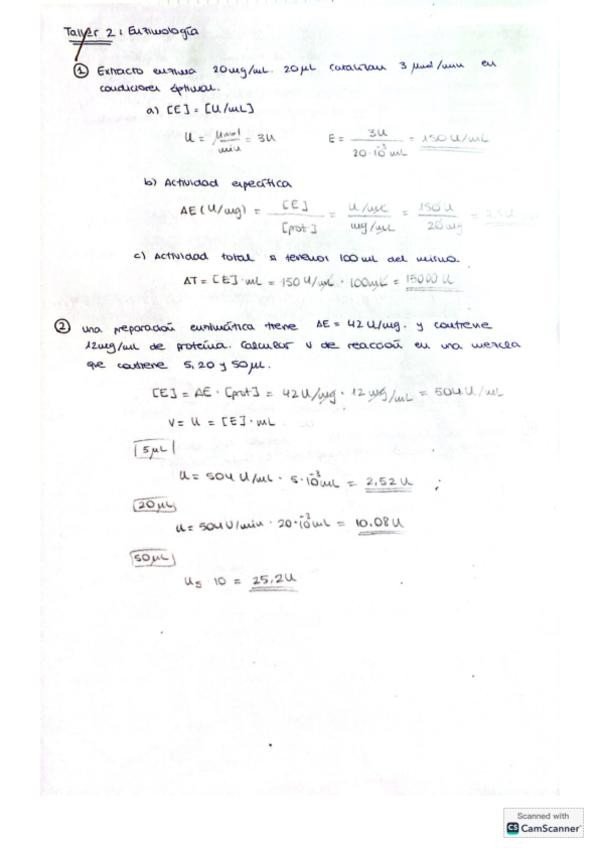 Taller 2: Enzimología
① Extracto enzima 20mg/mL. 20μL catalizan 3 μmol/min en
condiciones óptimas.
a) [E] = [U/mL]
U = μmol/min = 3U E = 3U / 20·10⁻³ mL = 150 U/mL
b) Actividad específica
AE (U/mg) = [E] / [prot] = U/mL / mg/mL = 150 U / 20 mg = 7,5 U
c) Actividad total si tenemos 100 mL del mismo.
AT = [E] · mL = 150 U/mL · 100mL = 15000 U
② Una preparación enzimática tiene AE = 42 U/mg. y contiene
12mg/mL de proteína. Calcular V de reacción en una mezcla
que contiene 5, 20 y 50μL.
[E] = AE · [prot] = 42 U/mg · 12 mg/mL = 504 U/mL
V = U = [E] · mL
5μL
U = 504 U/mL · 5·10⁻³ mL = 2,52 U ;
20μL
U = 504 U/min · 20·10⁻³ mL = 10.08 U
50μL
U5 10 = 25,2 U
Scanned with
CS CamScanner